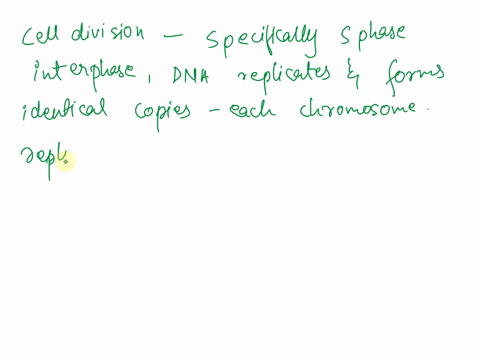 Cell division – specifically S phase
interphase, DNA replicates & forms
identical copies – each chromosome.
repl